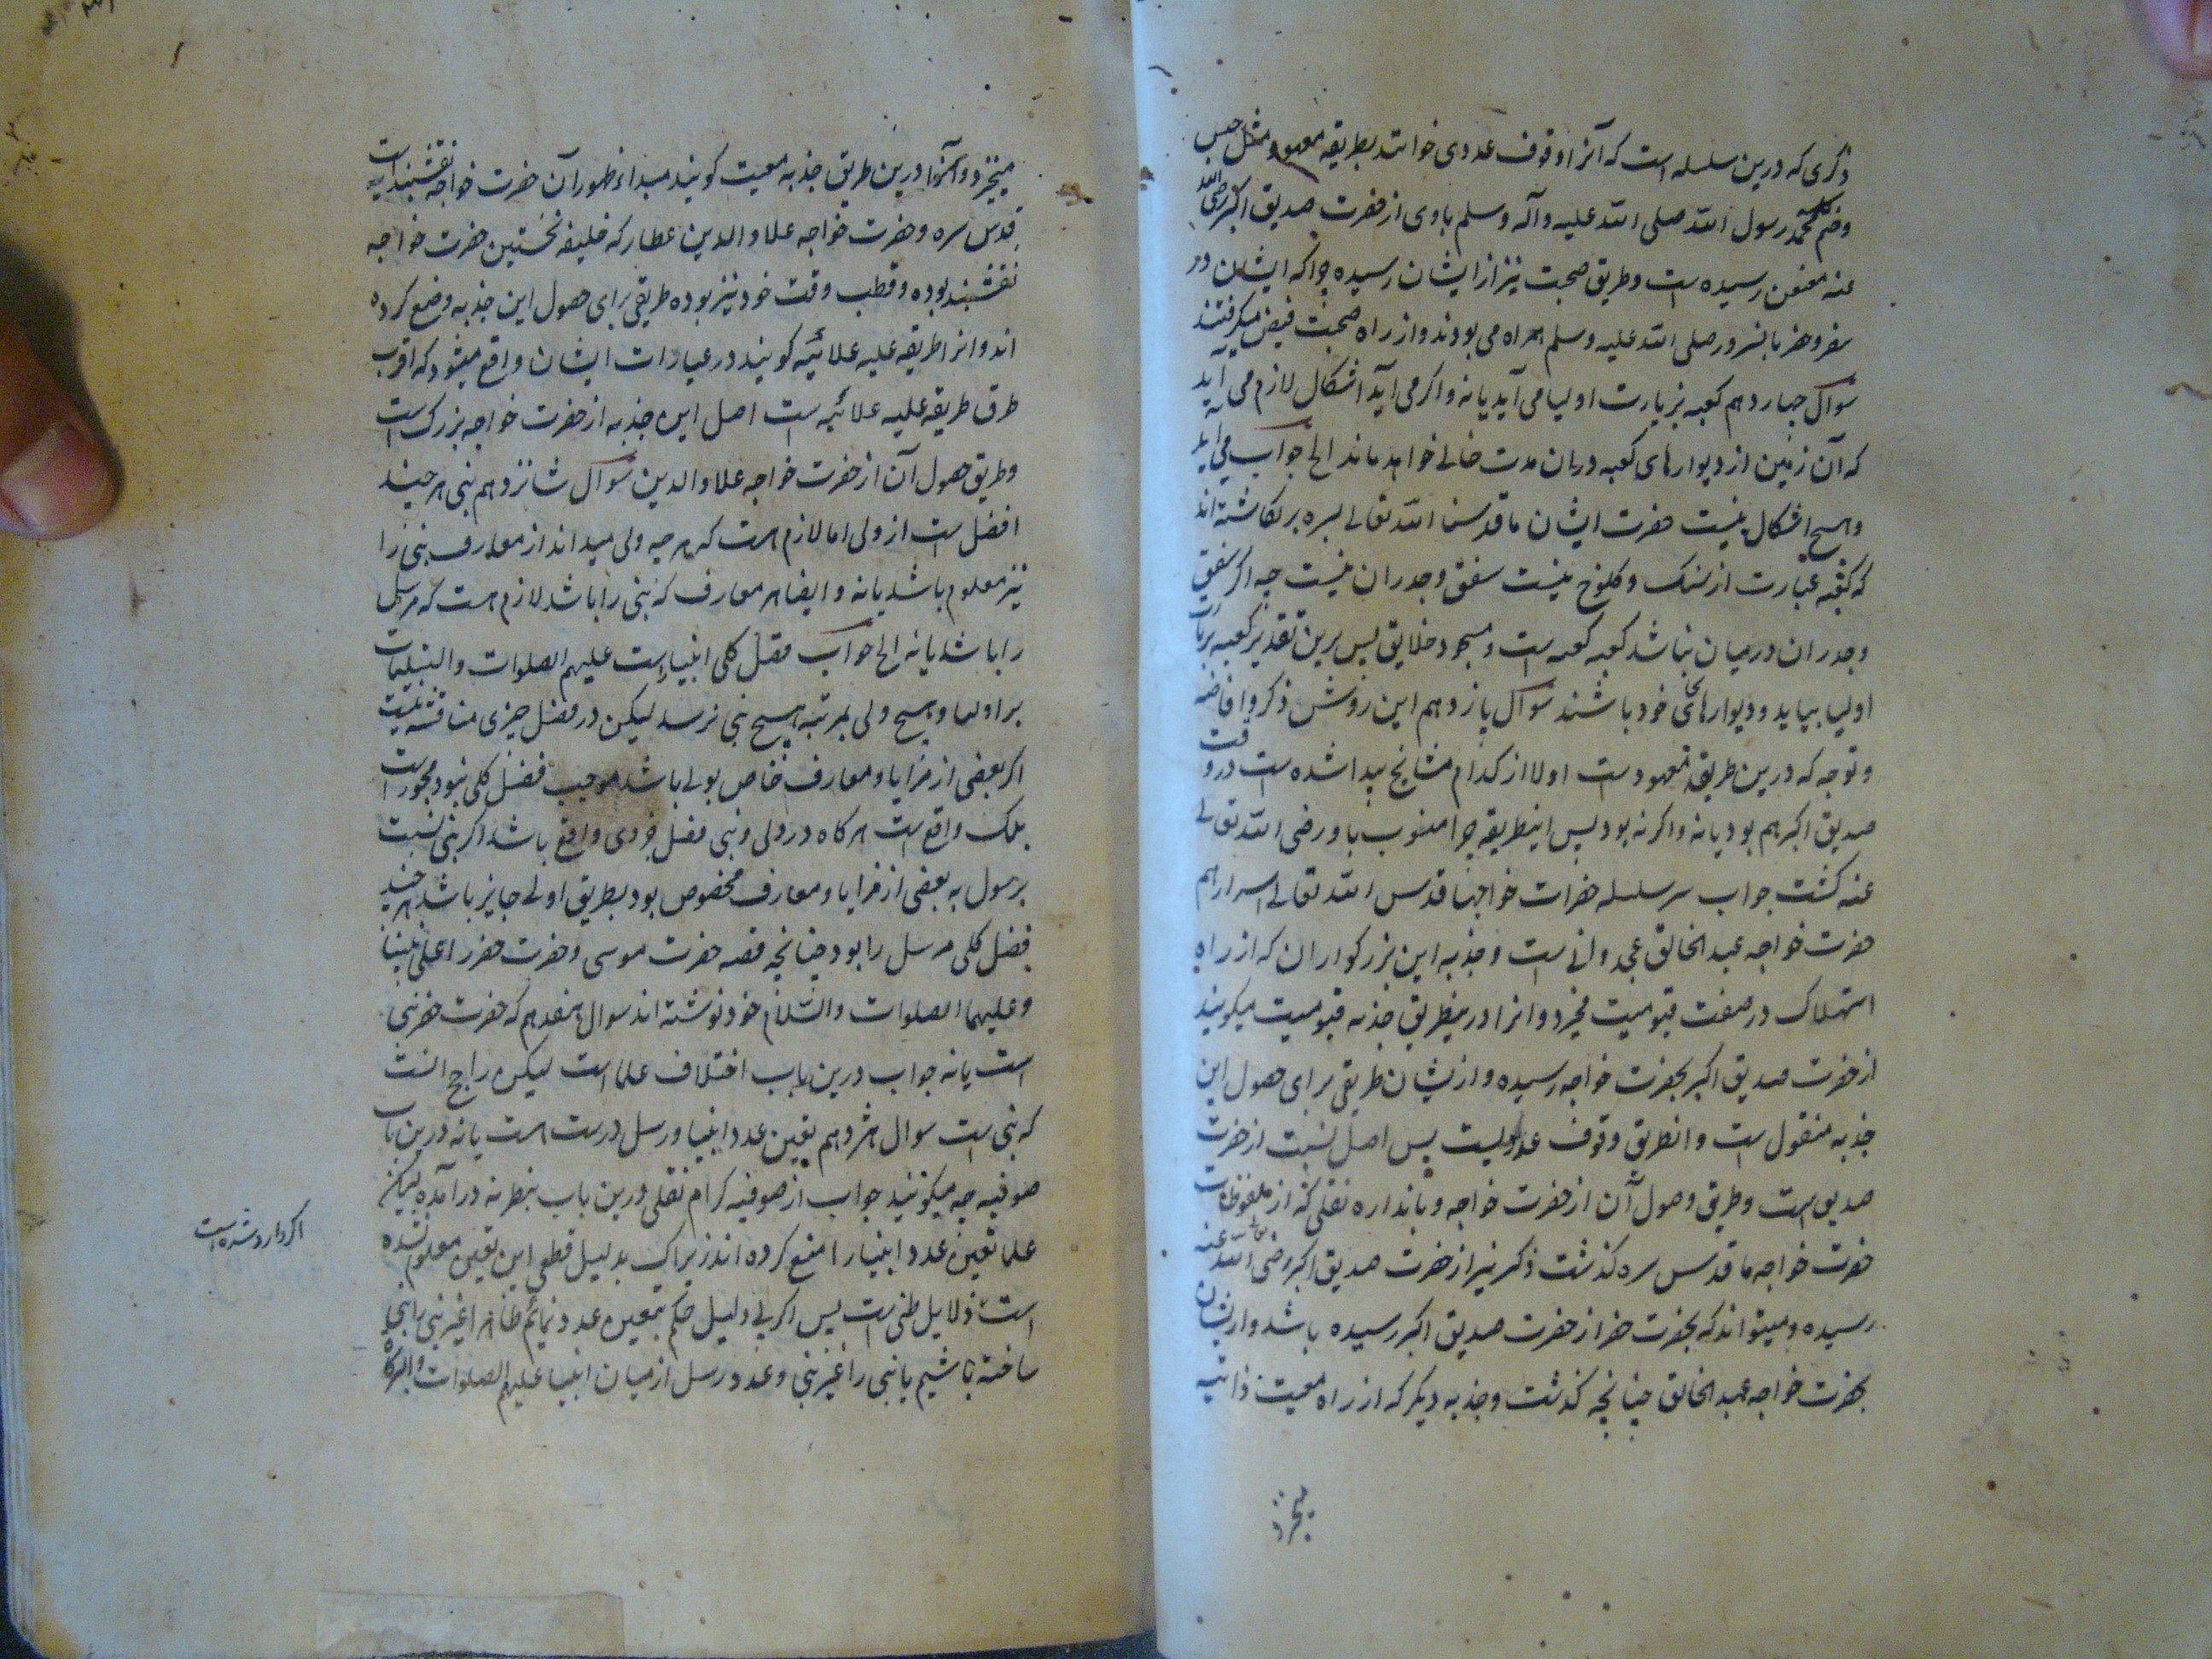 ذکری که درین سلسله است که آنرا وقوف عددی خوانند بطریقه معهود مثل حبس
وضم کلمه محمد رسول الله صلی الله علیه وآله وسلم باوی از حضرت صدیق اکبر رضی الله
عنه معنعن رسیده است وطریق صحبت نیز از ایشان رسیده چرا که ایشان در
سفر وحضر بانسرور صلی الله علیه وسلم همراه می بودند واز راه صحبت فیض میگرفتند
سوال چهاردهم کعبه بزیارت اولیا می آید یا نه واگر می آید اشکال لازم می آید
که آن زمین از دیوارهای کعبه دران مدت خالی خواهد ماند الخ جواب می آید
وهیچ اشکال نیست حضرت ایشان ما قدسنا الله تعالی بسره برنگاشته اند
که کعبه عبارت از سنک وکلوخ نیست سقف وجدران نیست چه اگر سقف
وجدران درمیان نباشد کعبه کعبه است ومسجود خلایق پس برین تقدیر کعبه بزیارت
اولیا بیاید ودیوارهای بجای خود باشند سوال پانزدهم این روش ذکر وافاضه
وتوجه که درین طریق معهود است اولا از کدام مشایخ پیدا شده است در وقت
صدیق اکبر هم بود یا نه واگر نه بود پس اینطریقه چرا منسوب باو رضی الله تعالی
عنه گشت جواب سر سلسله حضرات خواجها قدس الله تعالی اسرارهم
حضرت خواجه عبد الخالق غجدوانی است وجذبه این بزرگواران که از راه
استهلاک در صفت قیومیت میخیزد وانرا درینطریق جذبه قیومیت میگویند
از حضرت صدیق اکبر بحضرت خواجه رسیده واز ایشان طریقی برای حصول این
جذبه منقول است وانطریق وقوف عددیست پس اصل نسبت از حضرت
صدیق است وطریق وصول آن از حضرت خواجه وباندازه نقلی که از ملفوظات
حضرت خواجه ما قدس سره گذشت ذکر نیز از حضرت صدیق اکبر رضی الله تعالی عنه
رسیده ومیتواند که بحضرت خضر از حضرت صدیق اکبر رسیده باشد واز ایشان
بحضرت خواجه عبد الخالق چنانچه گذشت وجذبه دیگر که از راه معیت ذاتیه
میخیزد
میخیزد وآنرا درین طریق جذبه معیت گویند مبداء ظهور آن حضرت خواجه نقشبند است
قدس سره وحضرت خواجه علاو الدین عطار که خلیفه نخستین حضرت خواجه
نقشبند بوده وقطب وقت خود نیز بوده طریقی برای حصول این جذبه وضع کرده
اند وانرا طریقه علیه علائیه گویند در عبارات ایشان واقع میشود که اقرب
طرق طریقه علیه علائیه است اصل این جذبه از حضرت خواجه بزرگ است
وطریق حصول آن از حضرت خواجه علاو الدین سوال شانزدهم نبی هر چند
افضل است از ولی اما لازم است که هر چه ولی میداند از معارف نبی را
نیز معلوم باشد یا نه وایضا هر معارف که نبی را باشد لازم است که مرسل
را باشد یا نه الخ جواب فضل کلی انبیا راست علیهم الصلوات والتسلیمات
بر اولیا وهیچ ولی بمرتبه هیچ نبی نرسد لیکن در فضل جزی مناقشه نیست
اگر بعضی از مزایا ومعارف خاص بولی باشد موجب فضل کلی نبود مجوز است
بلک واقع است هرگاه در ولی ونبی فضل جزوی واقع باشد اگر نبی نسبت
برسول به بعضی از مزایا ومعارف مخصوص بود بطریق اولی جایز باشد هر چند
فضل کلی مرسل را بود چنانچه قصه حضرت موسی وحضرت خضر را علی نبینا
وعلیهما الصلوات والسلام خود نوشته اند سوال هفدهم که حضرت خضر نبی
است یا نه جواب درین باب اختلاف علما است لیکن راجح انست
که نبی است سوال هژدهم تعین عدد انبیا ورسل درست است یا نه درین باب
صوفیه چه میگویند جواب از صوفیه کرام نقلی درین باب بنظر نه درآمده لیکن
علما تعین عدد انبیا را منع کرده اند زیراک بدلیل قطعی این تعین معلوم نشده
است دلایل ظنی است پس اگر بی دلیل حکم بتعین عدد نمائیم ظاهرا غیر نبی را نبی
ساخته باشیم یا نبی را غیر نبی وعدد رسل از میان انبیا علیهم الصلوات والبرکات
اگر وارد شده است